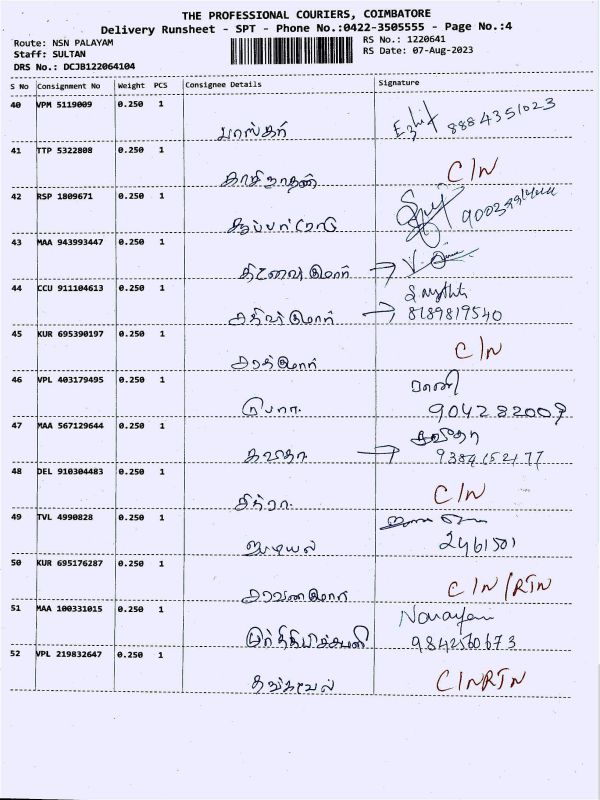 THE PROFESSIONAL COURIERS, COIMBATORE
Delivery Runsheet - SPT - Phone No.:0422-3505555 - Page No.:4
Route: NSN PALAYAM
RS No.: 1220641
Staff: SULTAN
RS Date: 07-Aug-2023
DRS No.: DCJB122064104
S No Consignment No Weight PCS Consignee Details Signature
40 VPM 5119009 0.250 1
பாஸ்கர் 8884351023
41 TTP 5322808 0.250 1
காசிநாதன் C/N
42 RSP 1809671 0.250 1
43 MAA 943993447 0.250 1
44 CCU 911104613 0.250 1
8189819540
45 KUR 695390197 0.250 1
C/N
46 VPL 403179495 0.250 1
ராணி
9042820009
47 MAA 567129644 0.250 1
கவிதா
கவிதா 9384152177
48 DEL 910304483 0.250 1
சித்ரா C/N
49 TVL 4990828 0.250 1
2461501
50 KUR 695176287 0.250 1
சரவணகுமார் C/N/RTN
51 MAA 100331015 0.250 1
Narayan
9842560673
52 VPL 219832647 0.250 1
தங்கவேல் C/NRTN